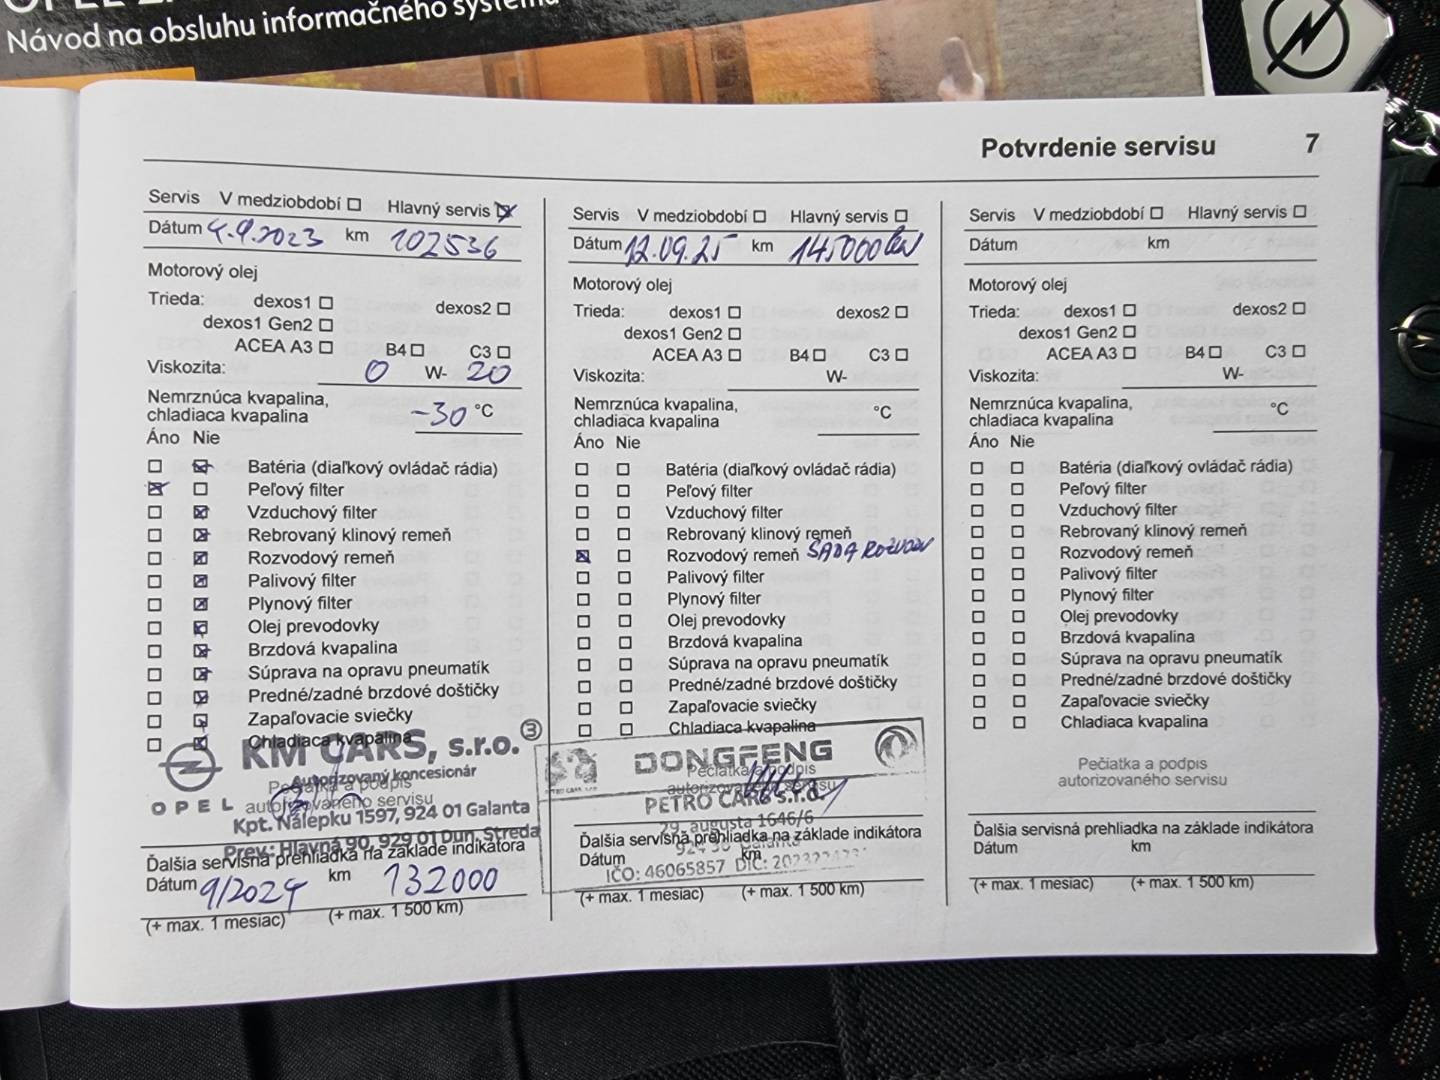 OPEL
Návod na obsluhu informačného systému
Potvrdenie servisu 7
Servis V medziobdobí Hlavný servis
Dátum 4.9.2023 km 102536
Motorový olej
Trieda: dexos1 dexos2
dexos1 Gen2
ACEA A3 B4 C3
Viskozita: 0 W- 20
Nemrznúca kvapalina,
chladiaca kvapalina -30 °C
Áno Nie
Batéria (diaľkový ovládač rádia)
Peľový filter
Vzduchový filter
Rebrovaný klinový remeň
Rozvodový remeň
Palivový filter
Plynový filter
Olej prevodovky
Brzdová kvapalina
Súprava na opravu pneumatík
Predné/zadné brzdové doštičky
Zapaľovacie sviečky
Chladiaca kvapalina
KM CARS, s.r.o. 3
Autorizovaný koncesionár
Pečiatka a podpis
OPEL autorizovaného servisu
Kpt. Nálepku 1597, 924 01 Galanta
Prev.: Hlavná 90, 929 01 Dun. Streda
Ďalšia servisná prehliadka na základe indikátora
Dátum 9/2024 km 132000
(+ max. 1 mesiac) (+ max. 1 500 km)
Servis V medziobdobí Hlavný servis
Dátum 12.09.25 km 145000 km
Motorový olej
Trieda: dexos1 dexos2
dexos1 Gen2
ACEA A3 B4 C3
Viskozita: W-
Nemrznúca kvapalina,
chladiaca kvapalina °C
Áno Nie
Batéria (diaľkový ovládač rádia)
Peľový filter
Vzduchový filter
Rebrovaný klinový remeň
Rozvodový remeň SADA ROZVODOV
Palivový filter
Plynový filter
Olej prevodovky
Brzdová kvapalina
Súprava na opravu pneumatík
Predné/zadné brzdové doštičky
Zapaľovacie sviečky
Chladiaca kvapalina
DONGFENG
Pečiatka a podpis
autorizovaného servisu
PETRO CARS s.r.o.
29. augusta 1646/6
Galanta
Ďalšia servisná prehliadka na základe indikátora
Dátum km
IČO: 46065857 DIČ:
(+ max. 1 mesiac) (+ max. 1 500 km)
Servis V medziobdobí Hlavný servis
Dátum km
Motorový olej
Trieda: dexos1 dexos2
dexos1 Gen2
ACEA A3 B4 C3
Viskozita: W-
Nemrznúca kvapalina,
chladiaca kvapalina °C
Áno Nie
Batéria (diaľkový ovládač rádia)
Peľový filter
Vzduchový filter
Rebrovaný klinový remeň
Rozvodový remeň
Palivový filter
Plynový filter
Olej prevodovky
Brzdová kvapalina
Súprava na opravu pneumatík
Predné/zadné brzdové doštičky
Zapaľovacie sviečky
Chladiaca kvapalina
Pečiatka a podpis
autorizovaného servisu
Ďalšia servisná prehliadka na základe indikátora
Dátum km
(+ max. 1 mesiac) (+ max. 1 500 km)